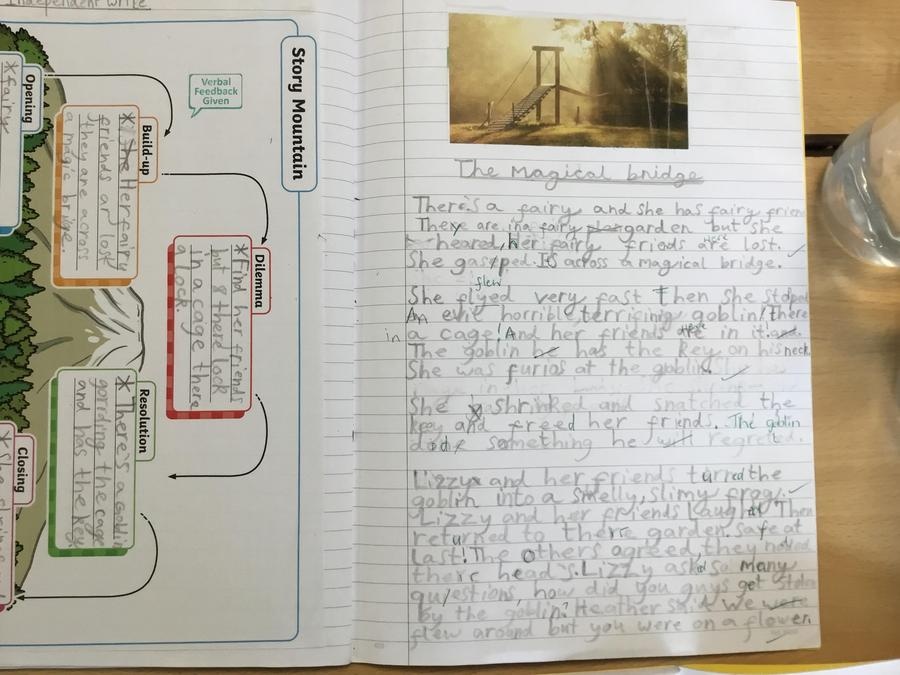 Independent write
Story Mountain
Verbal
Feedback
Given
Opening
*fairy
Build-up
*She Her fairy
friends ar lost
they are across
a magic bridge.
Dilemma
*find her friends
but 8 there lock
in a cage there
a lock.
Resolution
*There's a goblin
gording the cage
and has the key.
Closing
The Magical bridge
There's a fairy and she has fairy frien
There are in a fairy garden but she
heared, her fairy friods are lost.
She gasped. It's across a magical bridge.
flew
She flyed very fast Then she stoped
An evil horrible, terrifing goblin! there
in a cage! And her friends are in it.
The goblin he has the key on his neck.
She was furios at the goblin.
She shrinked and snatched the
key and freed her friends. The goblin
did something he will regreted.
Lizzy and her friends turned the
goblin into a smelly, slimy frog.
Lizzy and her friends laughed Then
returned to there garden. Safe at
last! The others agreed, they noded
there head's. Lizzy asked so many
questions, how did you guys get stolen
by the goblin? Heather said We were
flew around but you were on a flower.